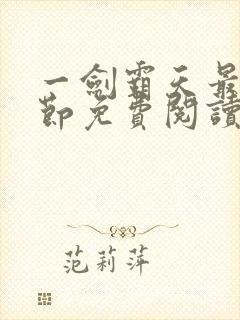 一劍霸天最
節免費閱讀
范莉萍